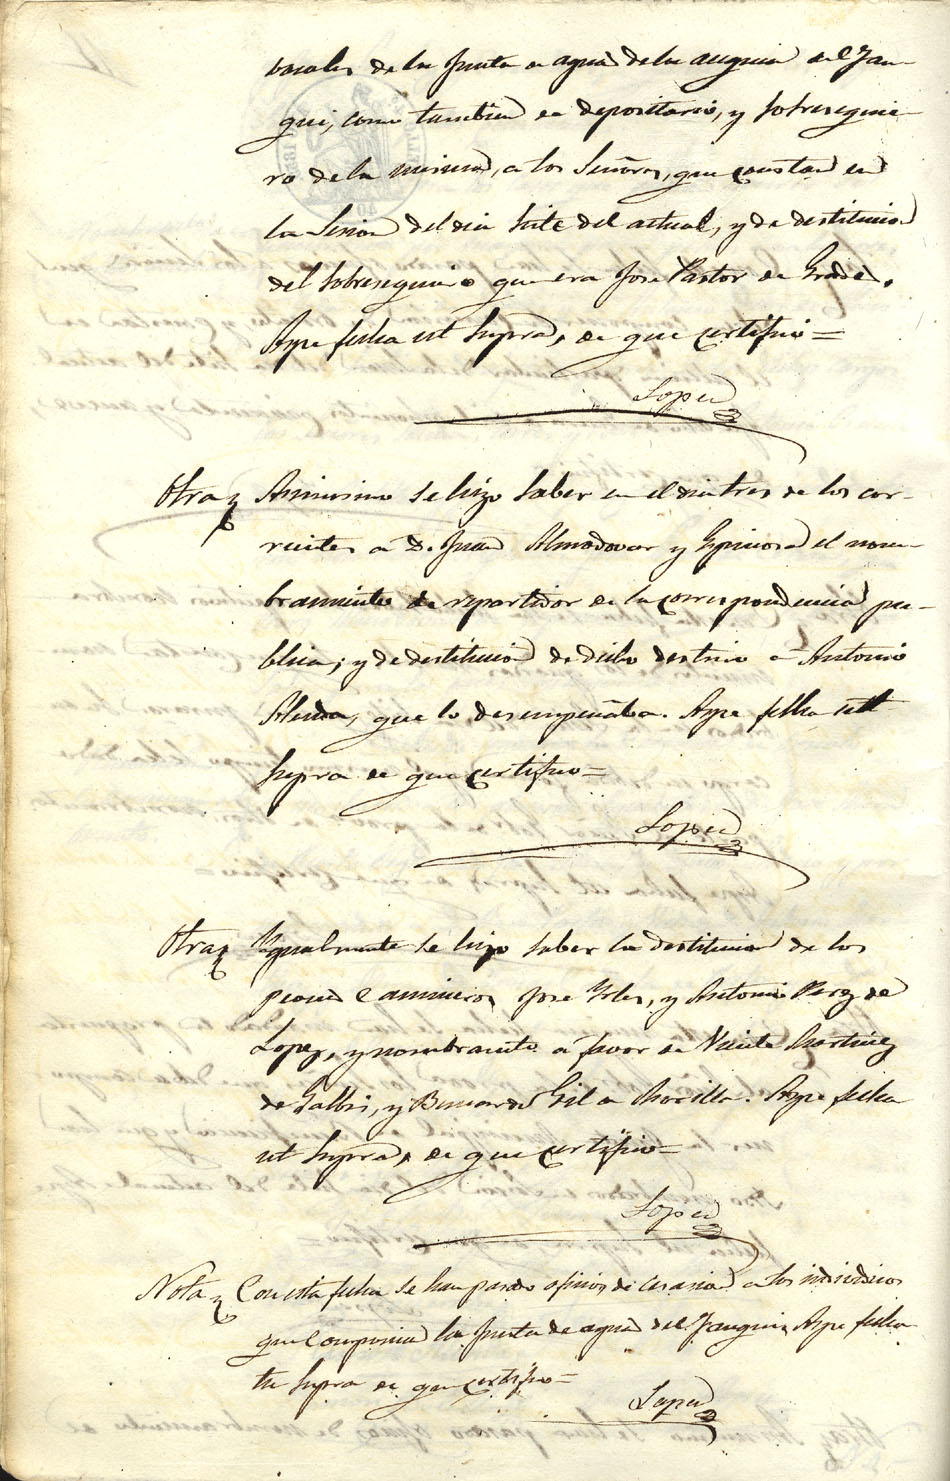 vocales de la Junta de agua de la acequia del Jan-
gui, como tambien de depositario, y sobreseguie-
ro de la misma, a los Señores, que constan en
la Sesion del dia siete del actual, y de destitucion
del sobresequiero que era Jose Pastor de Grade.
Aspe fecha ut supra, de que certifico=
Lopez
Otra Asimismo se hizo saber en el dia tres de los cor-
rientes á D. Juan Almodovar y Espinosa el nom-
bramiento de repartidor de la correspondencia pu-
blica; y de destitucion de dicho destino á Antonio
que lo desempeñaba. Aspe fecha ut
supra de que certifico=
Lopez
Otra Igualmente se hizo saber la destitucion de los
peones Camineros Jose y Antonio Perez de
Lopez, y nombramto. á favor de Vicente Martinez
de Galbis, y Bernardo Gil de Aspe fecha
ut supra, de que certifico=
Lopez
Nota Con esta fecha se han pasado oficios de cesacion a los individuos
que Componian la Junta de agua del Aspe fecha
ut supra de que certifico=
Lopez